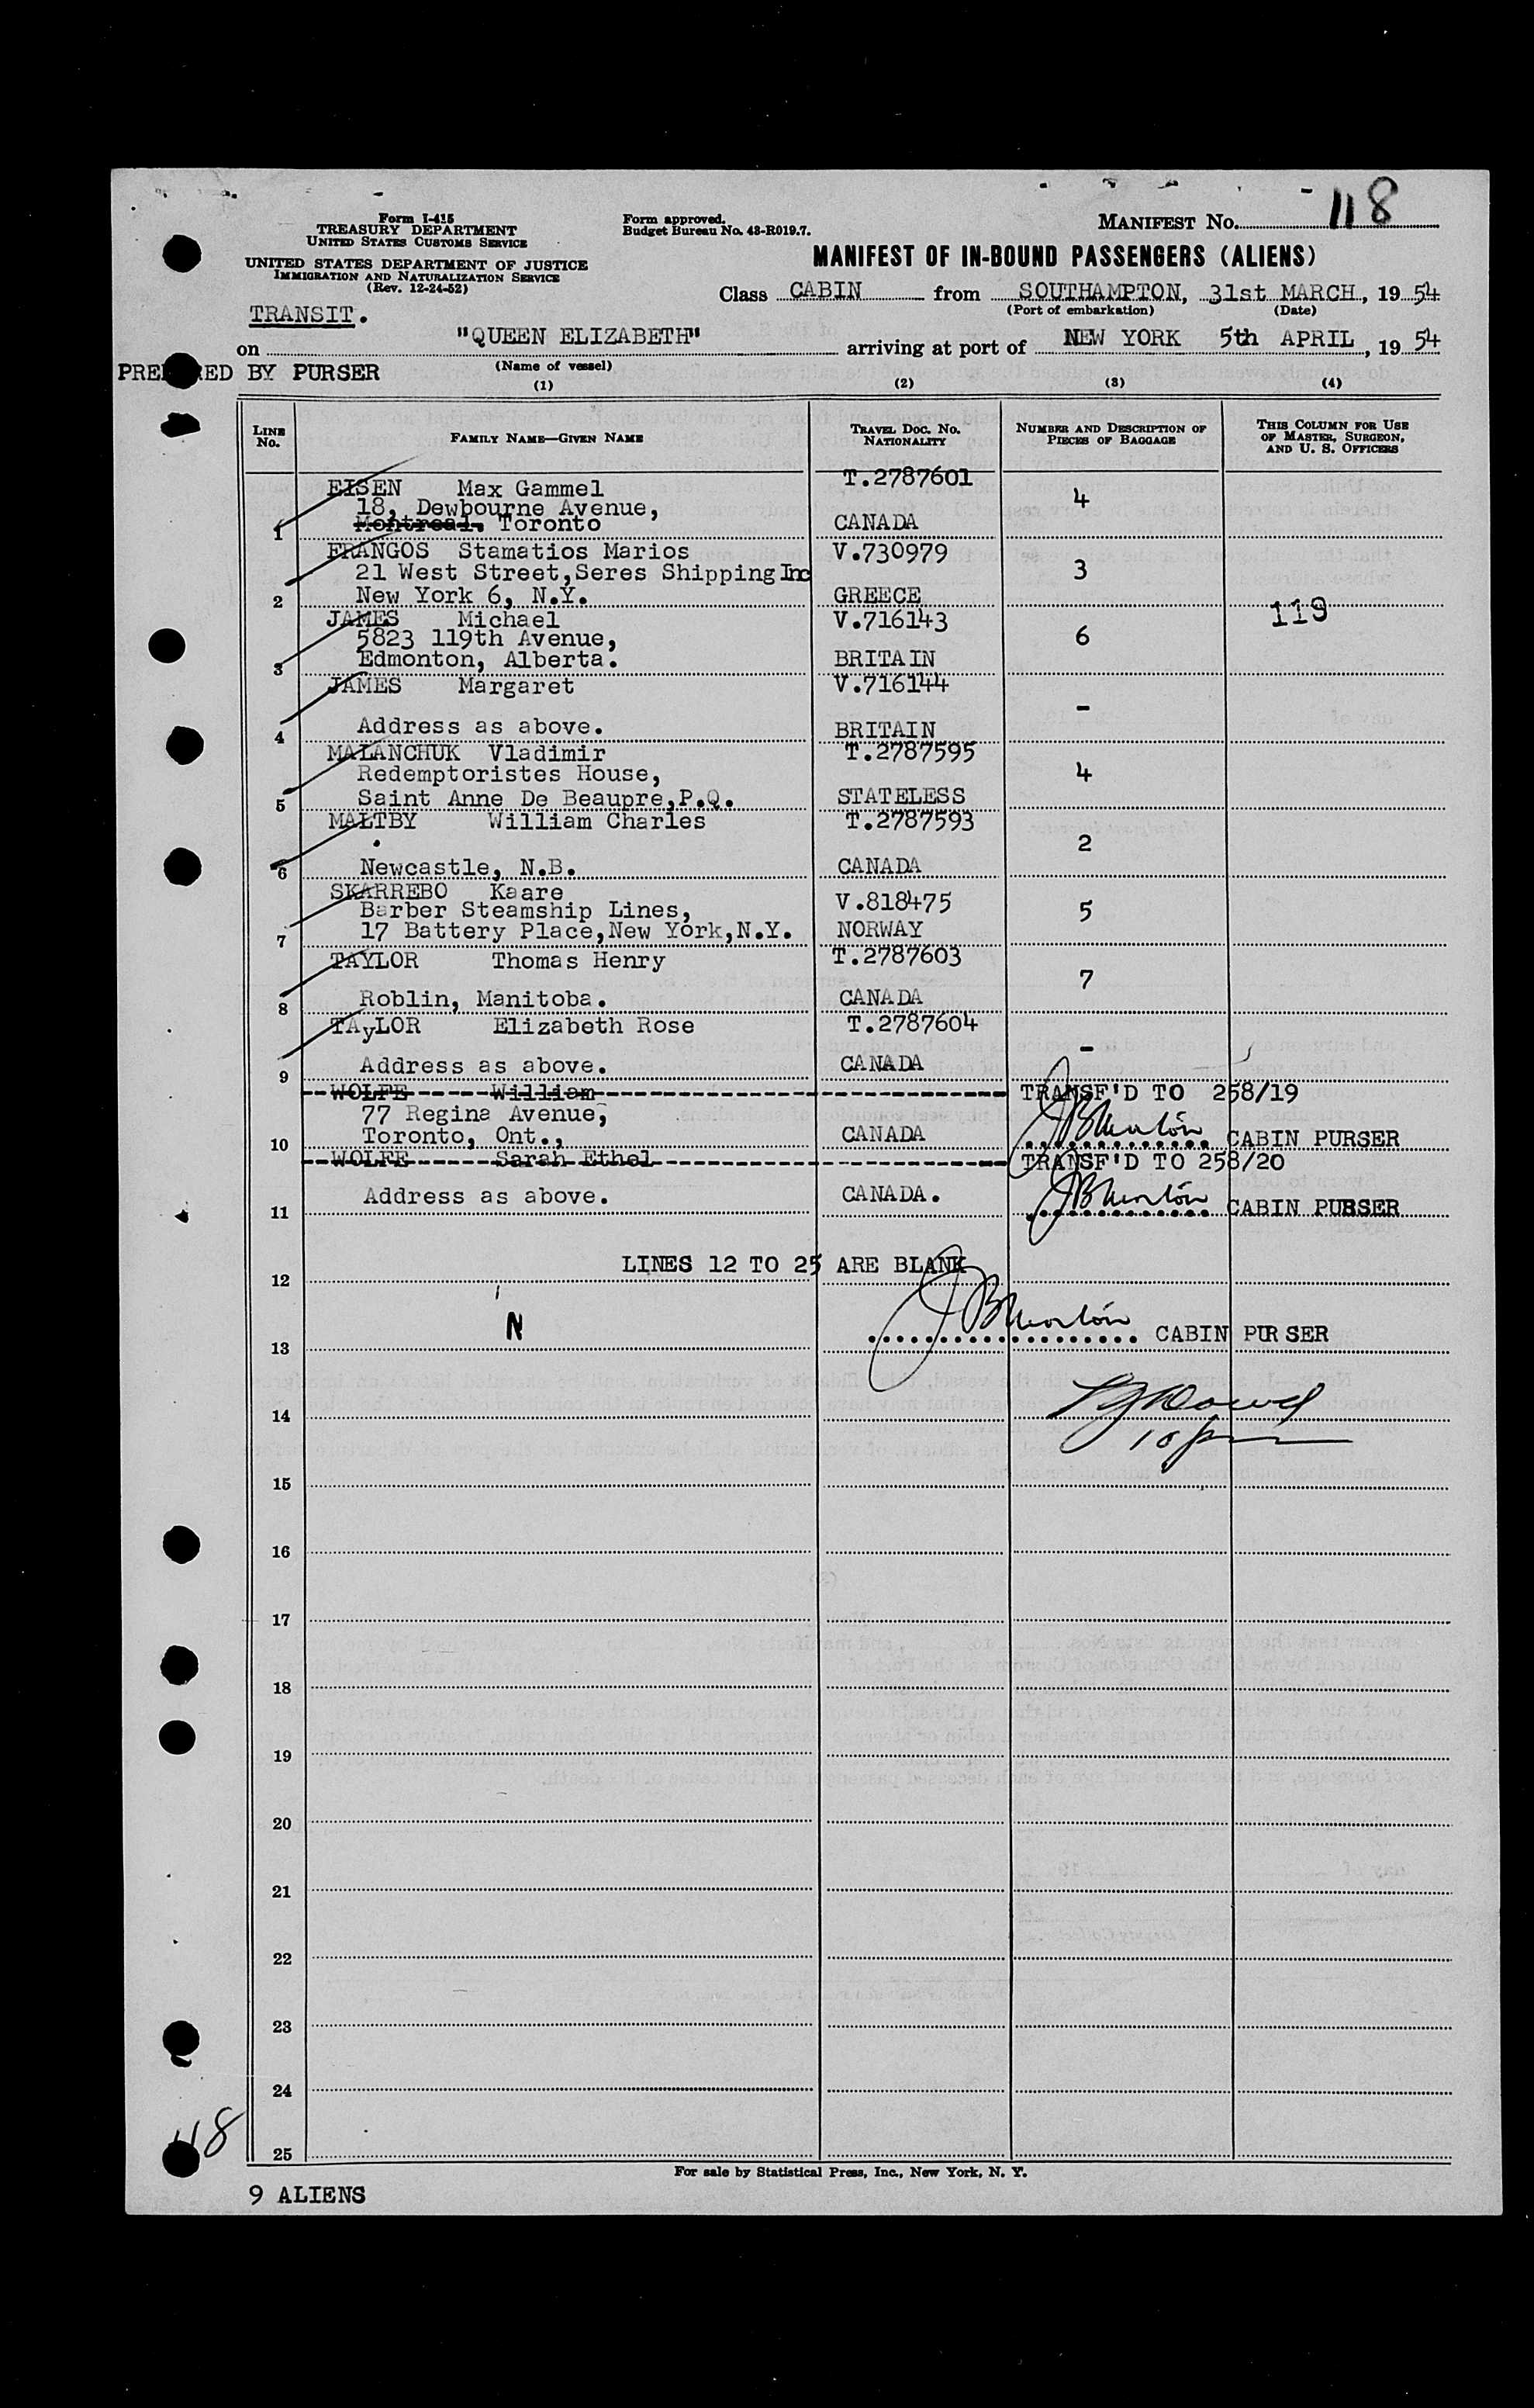 Form I-415
TREASURY DEPARTMENT
UNITED STATES CUSTOMS SERVICE
UNITED STATES DEPARTMENT OF JUSTICE
IMMIGRATION AND NATURALIZATION SERVICE
(Rev. 12-24-52)
Form approved.
Budget Bureau No. 43-R019.7.
MANIFEST No. 118
MANIFEST OF IN-BOUND PASSENGERS (ALIENS)
Class CABIN from SOUTHAMPTON, 31st MARCH, 19 54
(Port of embarkation) (Date)
TRANSIT.
on "QUEEN ELIZABETH" arriving at port of NEW YORK 5th APRIL, 19 54
(Name of vessel)
PREPARED BY PURSER
(1) (2) (3) (4)
LINE No. FAMILY NAME—GIVEN NAME TRAVEL DOC. No. NATIONALITY NUMBER AND DESCRIPTION OF PIECES OF BAGGAGE THIS COLUMN FOR USE OF MASTER, SURGEON, AND U. S. OFFICERS
EISEN Max Gammel T.2787601 4
18, Dewbourne Avenue,
1 Montreal. Toronto CANADA
FRANGOS Stamatios Marios V.730979 3
21 West Street,Seres Shipping Inc
2 New York 6, N.Y. GREECE 119
JAMES Michael V.716143 6
5823 119th Avenue,
3 Edmonton, Alberta. BRITAIN
JAMES Margaret V.716144 -
4 Address as above. BRITAIN
MALANCHUK Vladimir T.2787595 4
Redemptoristes House,
5 Saint Anne De Beaupre,P.Q. STATELESS
MALTBY William Charles T.2787593 2
6 Newcastle, N.B. CANADA
SKARREBO Kaare V.818475 5
Barber Steamship Lines,
7 17 Battery Place,New York,N.Y. NORWAY
TAYLOR Thomas Henry T.2787603 7
8 Roblin, Manitoba. CANADA
TAyLOR Elizabeth Rose T.2787604 -
9 Address as above. CANADA
WOLFE William TRANSF'D TO 258/19
77 Regina Avenue,
10 Toronto, Ont., CANADA CABIN PURSER
WOLFE Sarah Ethel TRANSF'D TO 258/20
11 Address as above. CANADA. CABIN PURSER
LINES 12 TO 25 ARE BLANK
12
N
13 CABIN PURSER
14
10 pm
15
16
17
18
19
20
21
22
23
24
118
25
For sale by Statistical Press, Inc., New York, N. Y.
9 ALIENS